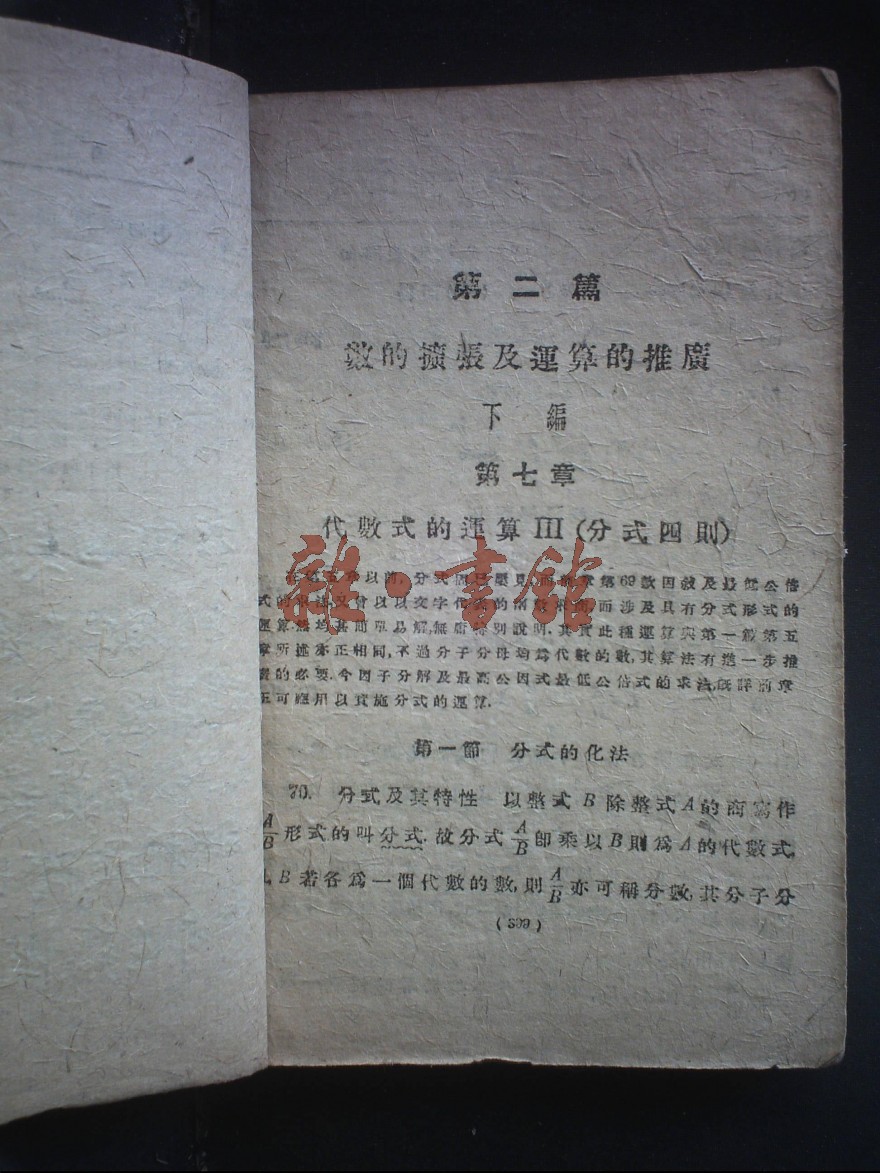 第二篇
數的擴張及運算的推廣
下編
第七章
代數式的運算III(分式四則)
在第五章以前,分式固已屢見,而前章第69款因敍及最低公倍
式的求法,又曾以文字代表的,而涉及具有分式形式的
運算.然均甚簡單易解,無庸特別說明.其實此種運算與第一篇第五
章所述亦正相同,不過分子分母均爲代數的數,其算法有進一步推
廣的必要.今因子分解及最高公因式最低公倍式的求法,旣詳前章
正可應用以實施分式的運算.
第一節 分式的化法
70. 分式及其特性 以整式B除整式A的商寫作
A/B形式的叫分式.故分式A/B卽乘以B則爲A的代數式.
B若各爲一個代數的數,則A/B亦可稱分數,其分子分
(399)
雜·書館